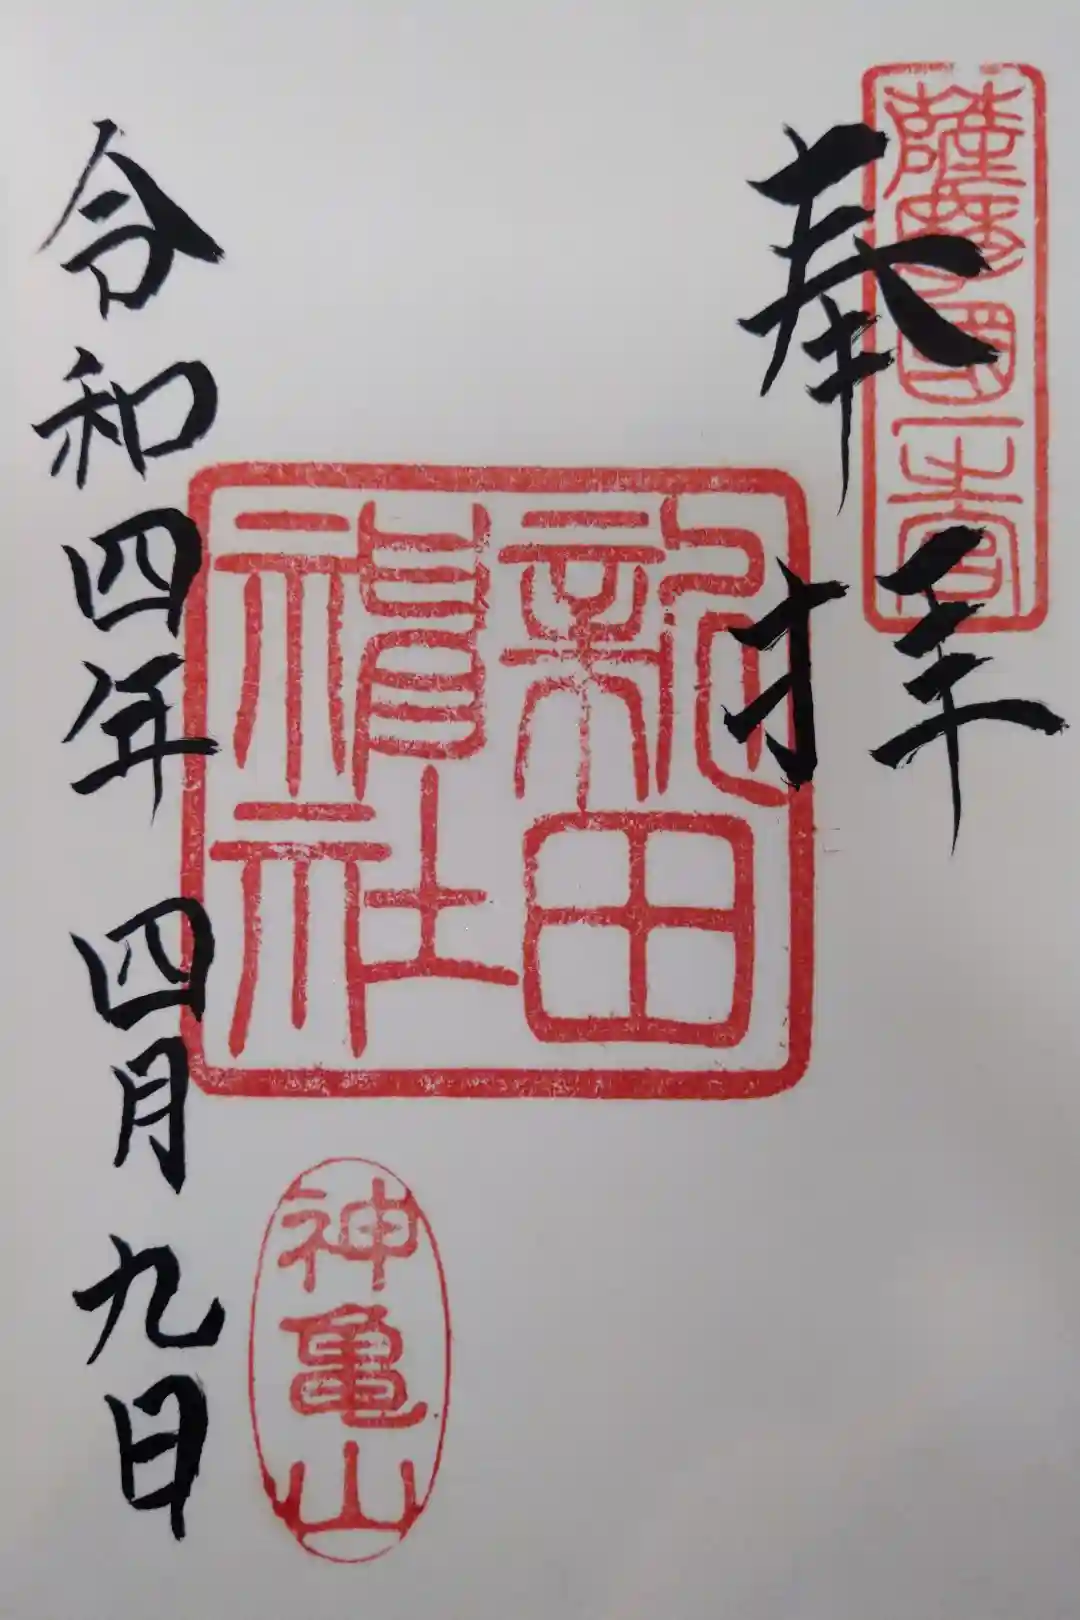 薩摩國一宮
奉拝
新田
神社
神亀山
令和四年四月九日